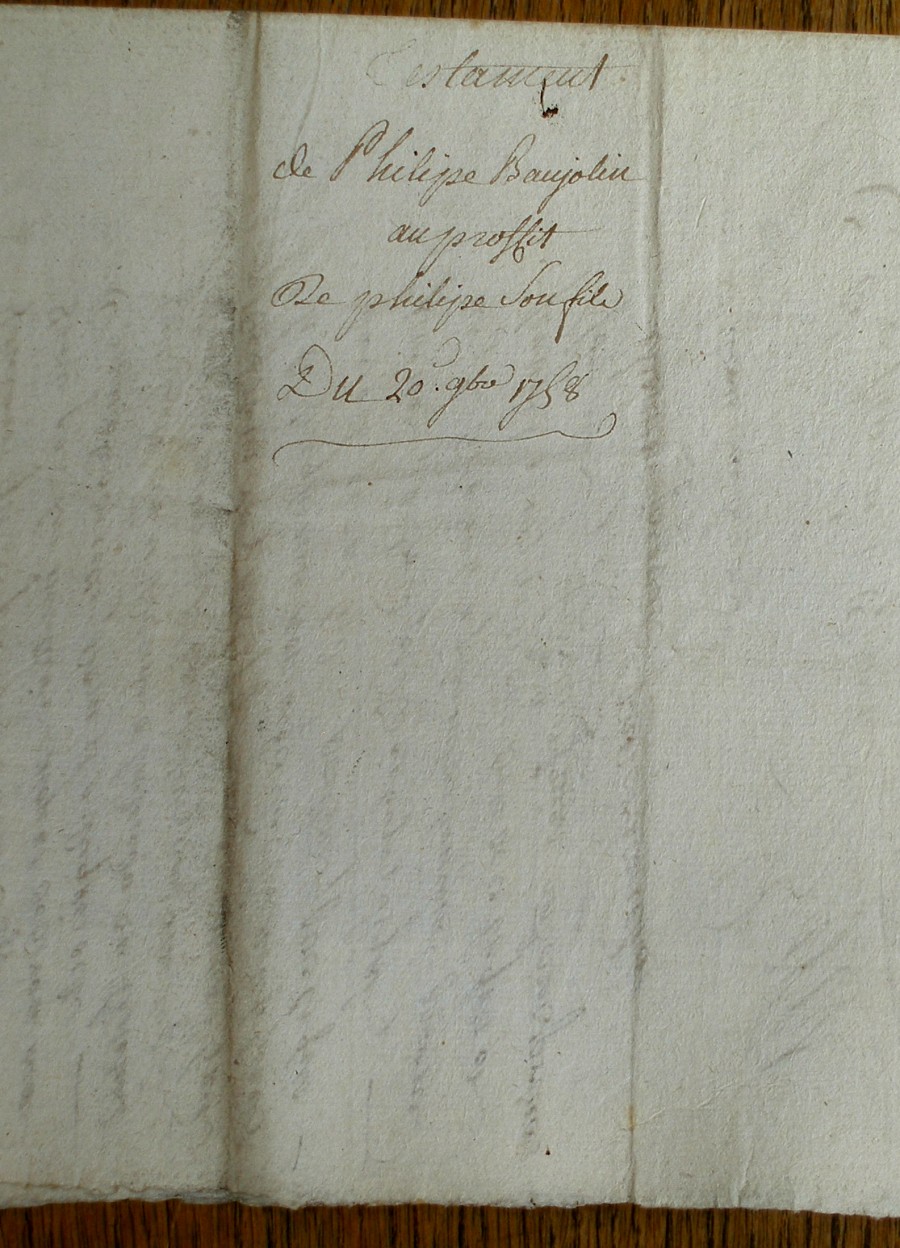 Testament
de Philipe Baujolin
au proffit
De philipe Son fils
Du 20. 9bre 1758